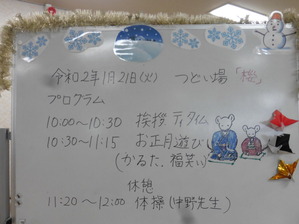 令和2年1月21日(火) つどい場「穂」
プログラム
10:00～10:30 挨拶 ティタイム
10:30～11:15 お正月遊び
(かるた、福笑い)
休憩
11:20～12:00 体操(中野先生)